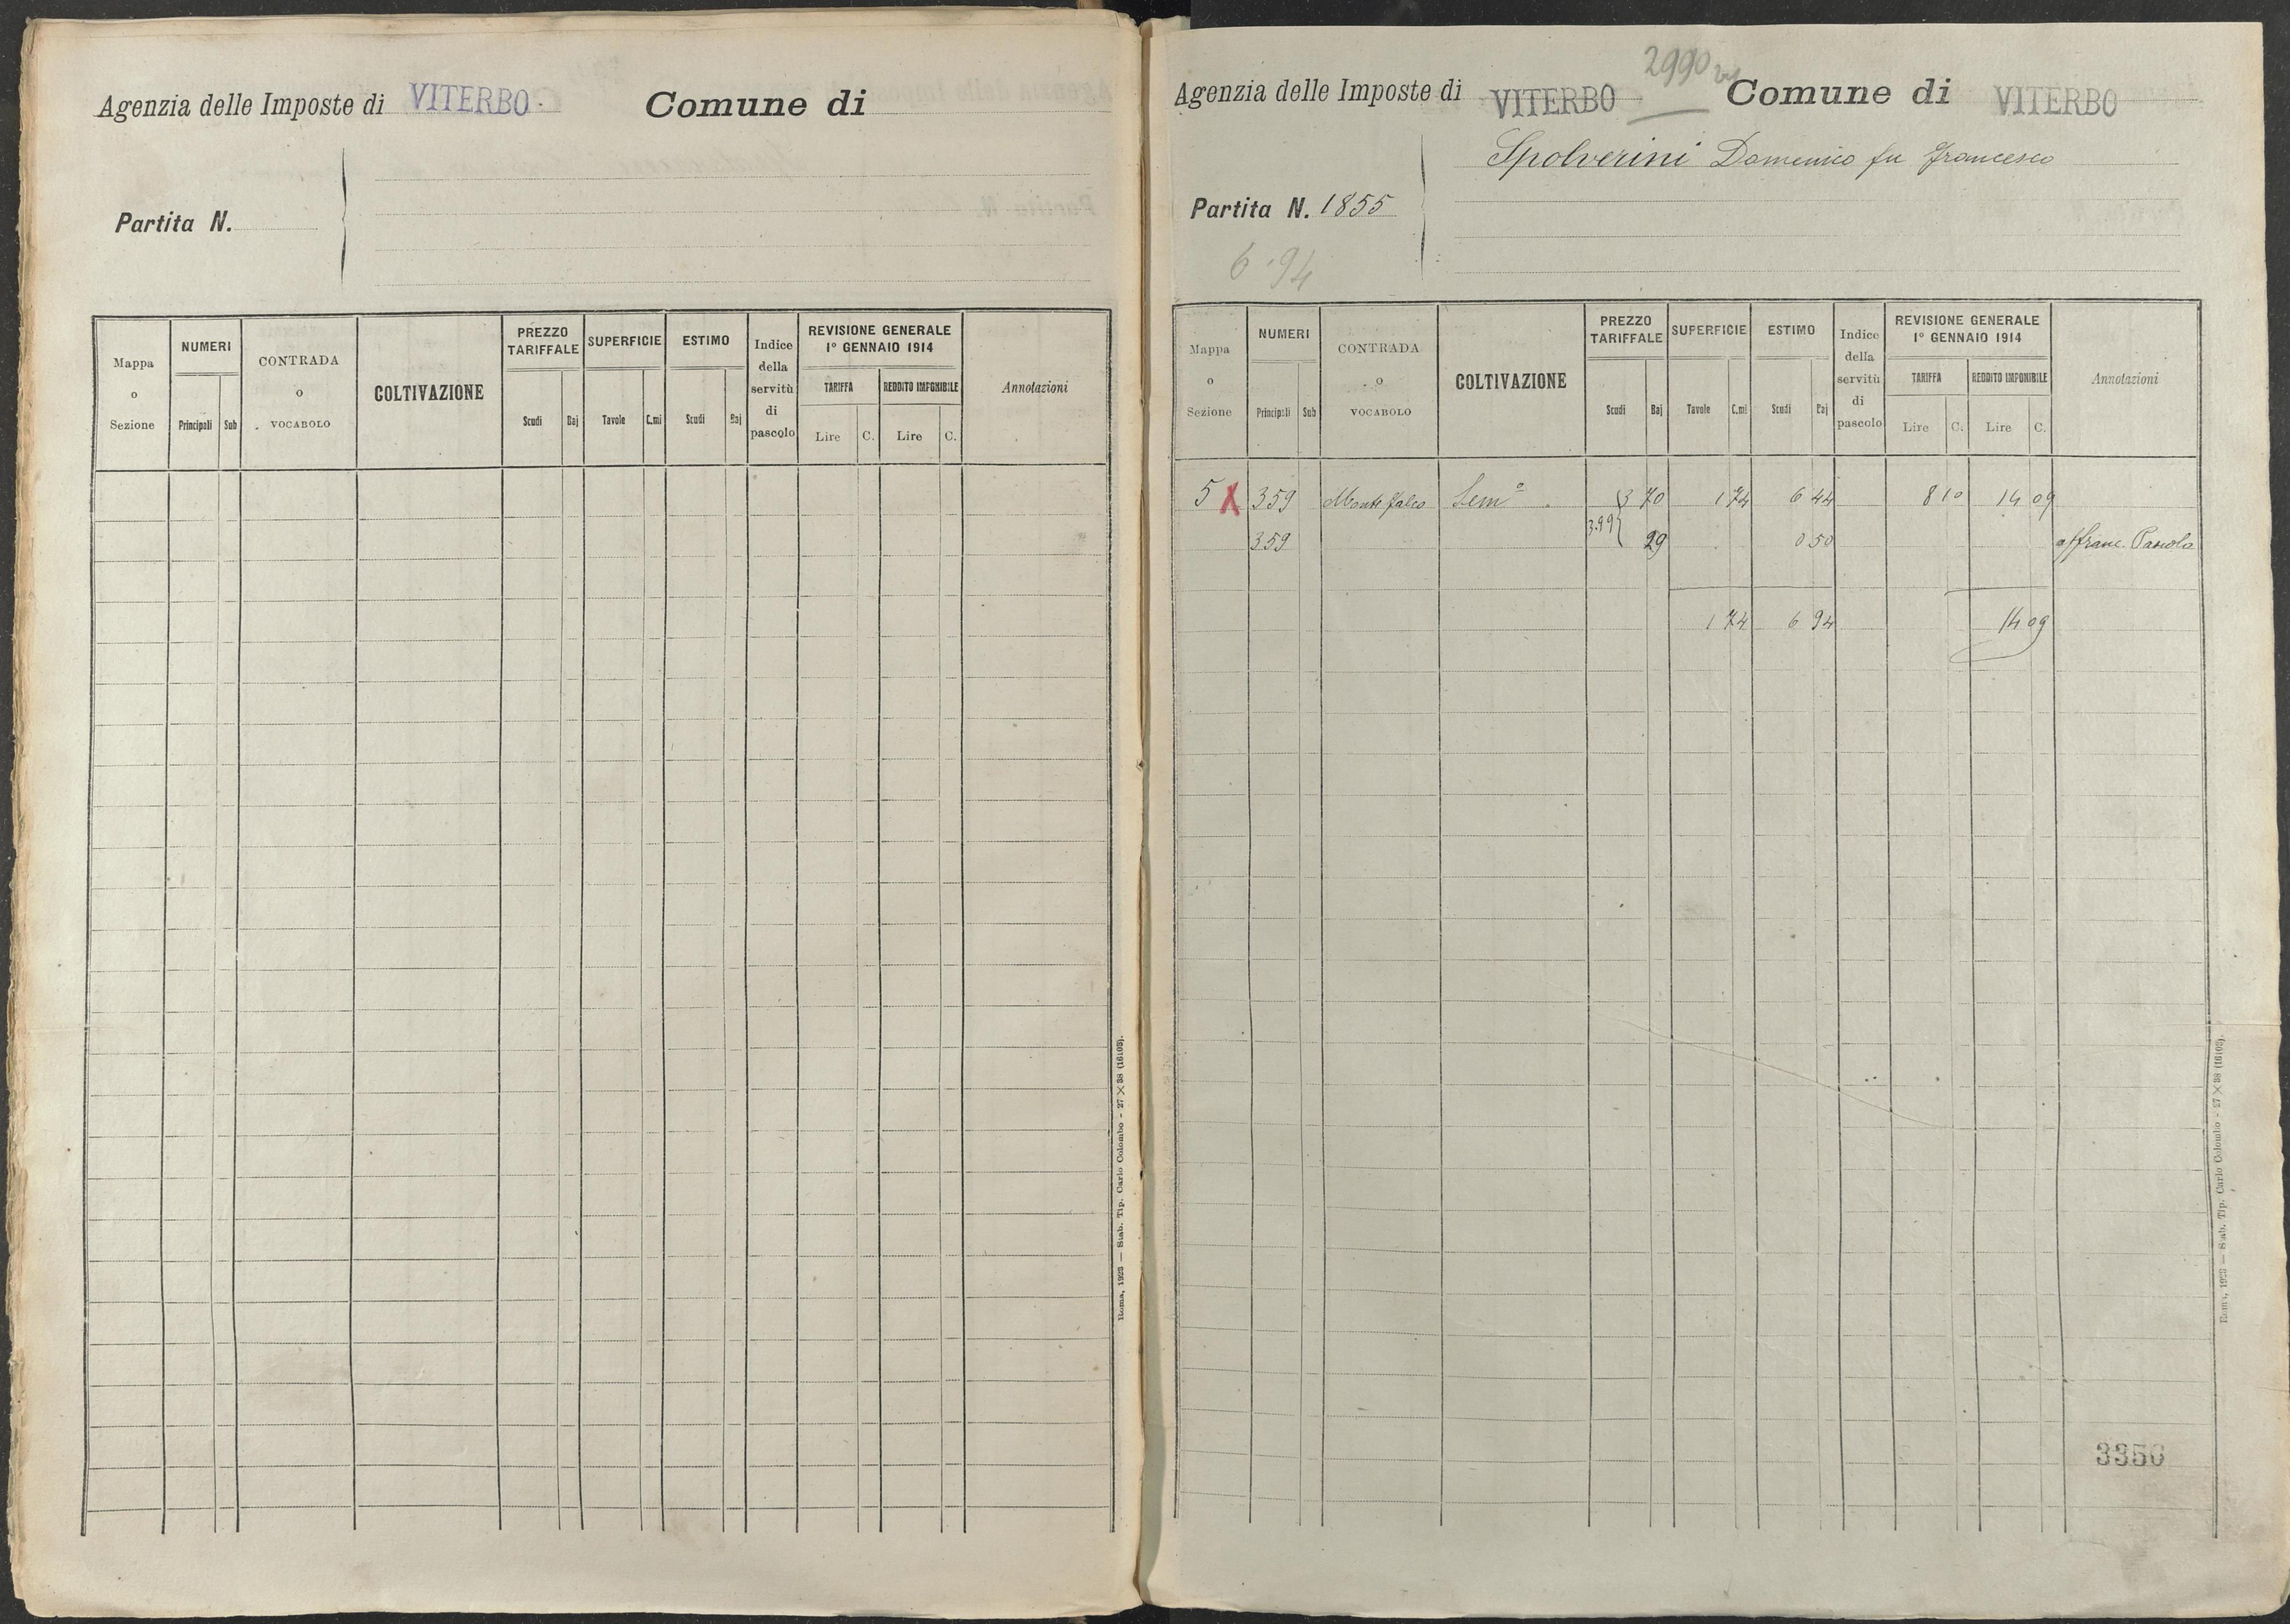 Agenzia delle Imposte di VITERBO. Comune di
Partita N.
Mappa o Sezione
NUMERI
Principali Sub
CONTRADA o VOCABOLO
COLTIVAZIONE
PREZZO TARIFFALE
Scudi Baj
SUPERFICIE
Tavole C.mi
ESTIMO
Scudi Baj
Indice della servitù di pascolo
REVISIONE GENERALE 1° GENNAIO 1914
TARIFFA
Lire C.
REDDITO IMPONIBILE
Lire C.
Annotazioni
Roma, 1923 — Stab. Tip. Carlo Colombo - 27 X 38 (16103).
2990
Agenzia delle Imposte di VITERBO Comune di VITERBO
Spolverini Domenico fu Francesco
Partita N. 1855
6.94
Mappa o Sezione
NUMERI
Principali Sub
CONTRADA o VOCABOLO
COLTIVAZIONE
PREZZO TARIFFALE
Scudi Baj
SUPERFICIE
Tavole C.mi
ESTIMO
Scudi Baj
Indice della servitù di pascolo
REVISIONE GENERALE 1° GENNAIO 1914
TARIFFA
Lire C.
REDDITO IMPONIBILE
Lire C.
Annotazioni
5 X 359 Monte falco Sem° 3 70 1 74 6 44 8 10 14 09
359 3.99 29 0 50 affranc. Pascolo
1 74 6 94 14 09
3350
Roma, 1923 — Stab. Tip. Carlo Colombo - 27 X 38 (16103).